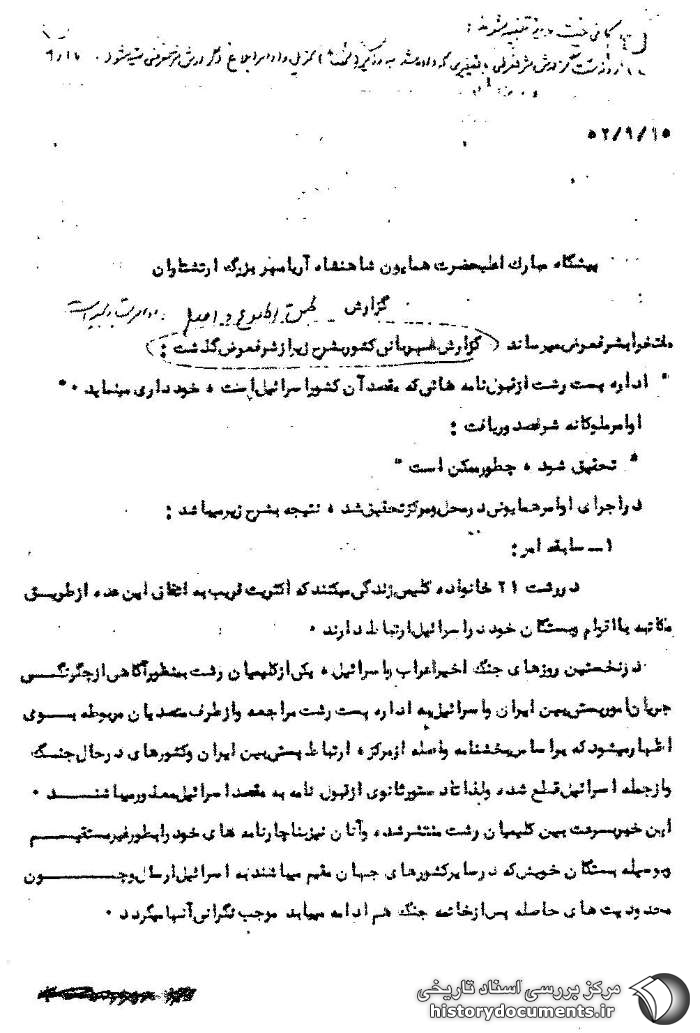 ۵۲/۹/۱۵
پیشگاه مبارک اعلیحضرت همایون شاهنشاه آریامهر بزرگ ارتشتاران
گزارش
مفتخرا بشرفعرض میرساند (گزارش شهربانی کشور بشرح زیر از شرفعرض گذشت :)
" اداره پست رشت از قبول نامه هائی که مقصد آن کشور اسرائیل است ، خودداری مینماید . "
اوامر ملوکانه شرفصدور یافت :
" تحقیق شود ، چطور ممکن است "
در اجرای اوامر همایونی در محل و مرکز تحقیق شد ، نتیجه بشرح زیر میباشد :
۱ ـ سابقه امر :
در رشت ۲۱ خانواده کلیمی زندگی میکنند که اکثریت قریب به اتفاق این عده از طریق
مکاتبه با اقوام و بستگان خود در اسرائیل ارتباط دارند .
در نخستین روزهای جنگ اخیر اعراب و اسرائیل ، یکی از کلیمیان رشت بمنظور آگاهی از چگونگی
جریان امور پستی بین ایران و اسرائیل به اداره پست رشت مراجعه و از طرف متصدیان مربوطه بوی
اظهار میشود که بر اساس بخشنامه واصله از مرکز ، ارتباط پستی بین ایران و کشورهای در حال جنگ
و از جمله اسرائیل قطع شده و لذا تا دستور ثانوی از قبول نامه به مقصد اسرائیل معذور میباشند .
این خبر بسرعت بین کلیمیان رشت منتشر شده و آنان نیز بناچار نامه های خود را بطور غیر مستقیم
و بوسیله بستگان خویش که در سایر کشورهای جهان مقیم میباشند به اسرائیل ارسال و چون
محدودیت های حاصله پس از خاتمه جنگ هم ادامه مییابد موجب نگرانی آنها میگردد .
مرکز بررسی اسناد تاریخی
historydocuments.ir